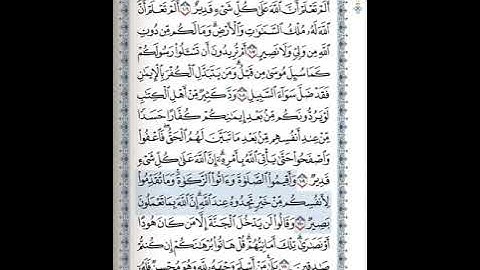 أَلَمْ تَعْلَمْ أَنَّ اللَّهَ عَلَىٰ كُلِّ شَيْءٍ قَدِيرٌ ١٠٦ أَلَمْ تَعْلَمْ أَنَّ
اللَّهَ لَهُ مُلْكُ السَّمَاوَاتِ وَالْأَرْضِ وَمَا لَكُم مِّن دُونِ
اللَّهِ مِن وَلِيٍّ وَلَا نَصِيرٍ ١٠٧ أَمْ تُرِيدُونَ أَن تَسْأَلُوا رَسُولَكُمْ
كَمَا سُئِلَ مُوسَىٰ مِن قَبْلُ وَمَن يَتَبَدَّلِ الْكُفْرَ بِالْإِيمَانِ
فَقَدْ ضَلَّ سَوَاءَ السَّبِيلِ ١٠٨ وَدَّ كَثِيرٌ مِّنْ أَهْلِ الْكِتَابِ
لَوْ يَرُدُّونَكُم مِّن بَعْدِ إِيمَانِكُمْ كُفَّارًا حَسَدًا
مِّنْ عِندِ أَنفُسِهِم مِّن بَعْدِ مَا تَبَيَّنَ لَهُمُ الْحَقُّ فَاعْفُوا
وَاصْفَحُوا حَتَّىٰ يَأْتِيَ اللَّهُ بِأَمْرِهِ إِنَّ اللَّهَ عَلَىٰ كُلِّ شَيْءٍ
قَدِيرٌ ١٠٩ وَأَقِيمُوا الصَّلَوٰةَ وَءَاتُوا الزَّكَوٰةَ وَمَا تُقَدِّمُوا
لِأَنفُسِكُم مِّنْ خَيْرٍ تَجِدُوهُ عِندَ اللَّهِ إِنَّ اللَّهَ بِمَا تَعْمَلُونَ
بَصِيرٌ ١١٠ وَقَالُوا لَن يَدْخُلَ الْجَنَّةَ إِلَّا مَن كَانَ هُودًا
أَوْ نَصَارَىٰ تِلْكَ أَمَانِيُّهُمْ قُلْ هَاتُوا بُرْهَانَكُمْ إِن كُنتُمْ
صَادِقِينَ ١١١ بَلَىٰ مَنْ أَسْلَمَ وَجْهَهُ لِلَّهِ وَهُوَ مُحْسِنٌ فَلَهُ